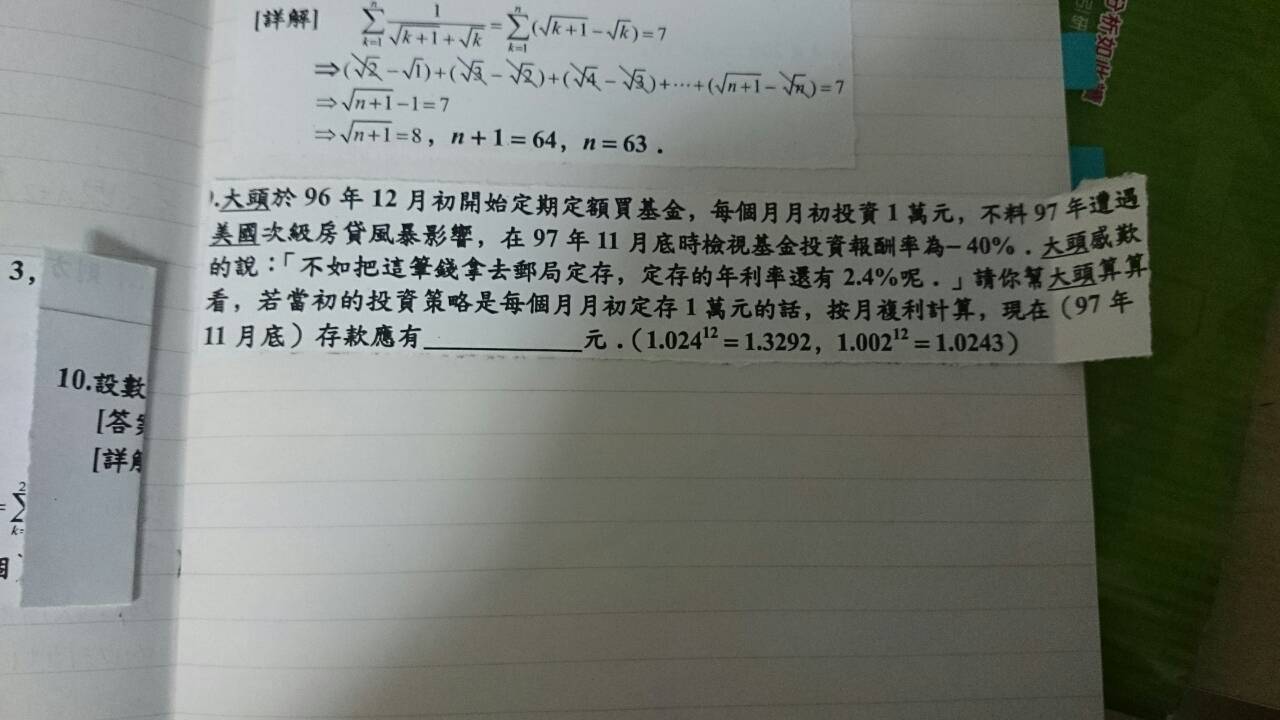 [詳解] $\sum_{k=1}^{n}\frac{1}{\sqrt{k+1}+\sqrt{k}}=\sum_{k=1}^{n}(\sqrt{k+1}-\sqrt{k})=7$
⇒(√2−√1)+(√3−√2)+(√4−√3)+⋯+(√(n+1)−√n)=7
⇒√(n+1)−1=7
⇒√(n+1)=8，n+1=64，n=63．
.大頭於 96 年 12 月初開始定期定額買基金，每個月月初投資 1 萬元，不料 97 年遭遇
美國次級房貸風暴影響，在 97 年 11 月底時檢視基金投資報酬率為−40%．大頭感歎
的說：「不如把這筆錢拿去郵局定存，定存的年利率還有 2.4%呢．」請你幫大頭算算
看，若當初的投資策略是每個月月初定存 1 萬元的話，按月複利計算，現在（97 年
11 月底）存款應有____________元．（1.024^12＝1.3292，1.002^12＝1.0243）
3,
10.設數
[答
[詳